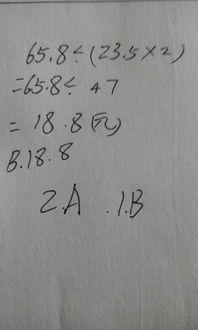 65.8-(23.5×2)
=65.8-47
=18.8(元)
B.18.8
2.A .1.B